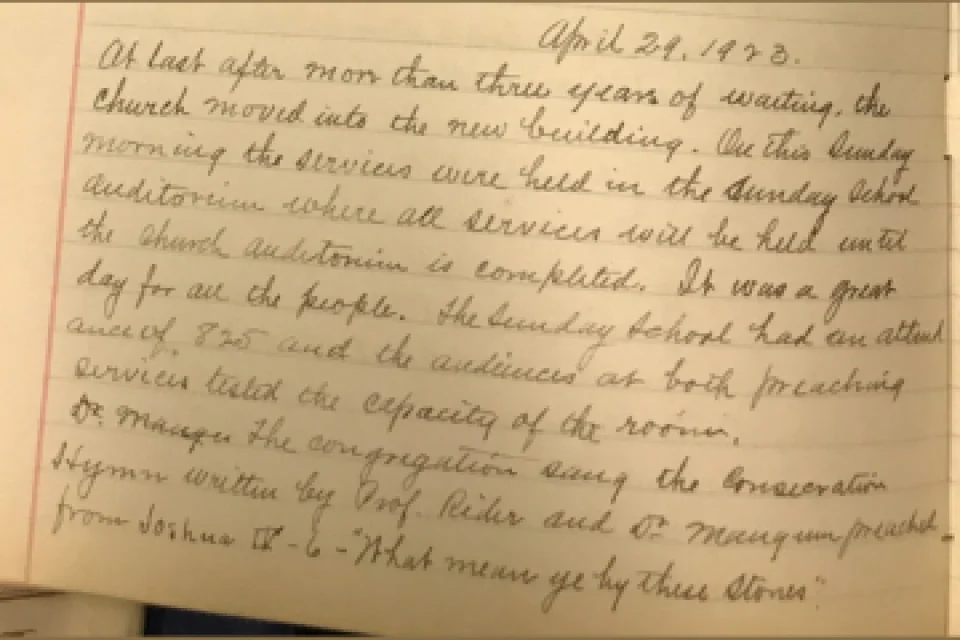 April 29, 1923.
At last after more than three years of waiting, the
church moved into the new building. On this Sunday
morning the services were held in the Sunday School
auditorium where all services will be held until
the church auditorium is completed. It was a great
day for all the people. The Sunday School had an attend
ance of 825 and the audiences at both preaching
services tested the capacity of the room.
Dr. Mangum the congregation sang the Consecration
Hymn written by Prof. Rider and Dr. Mangum preached
from Joshua IV - 6 - "What mean ye by these Stones"